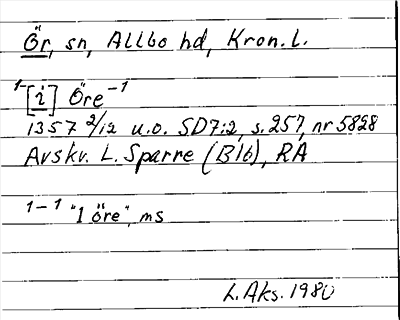 Ör, sn, Allbo hd, Kron. l.
1-[i] Öre-1
1357 2/12 u.o. SD7:2, s. 257, nr 5828
Avskv. L. Sparre (B16), RA
1-1 "I öre", ms
L. Aks. 1980